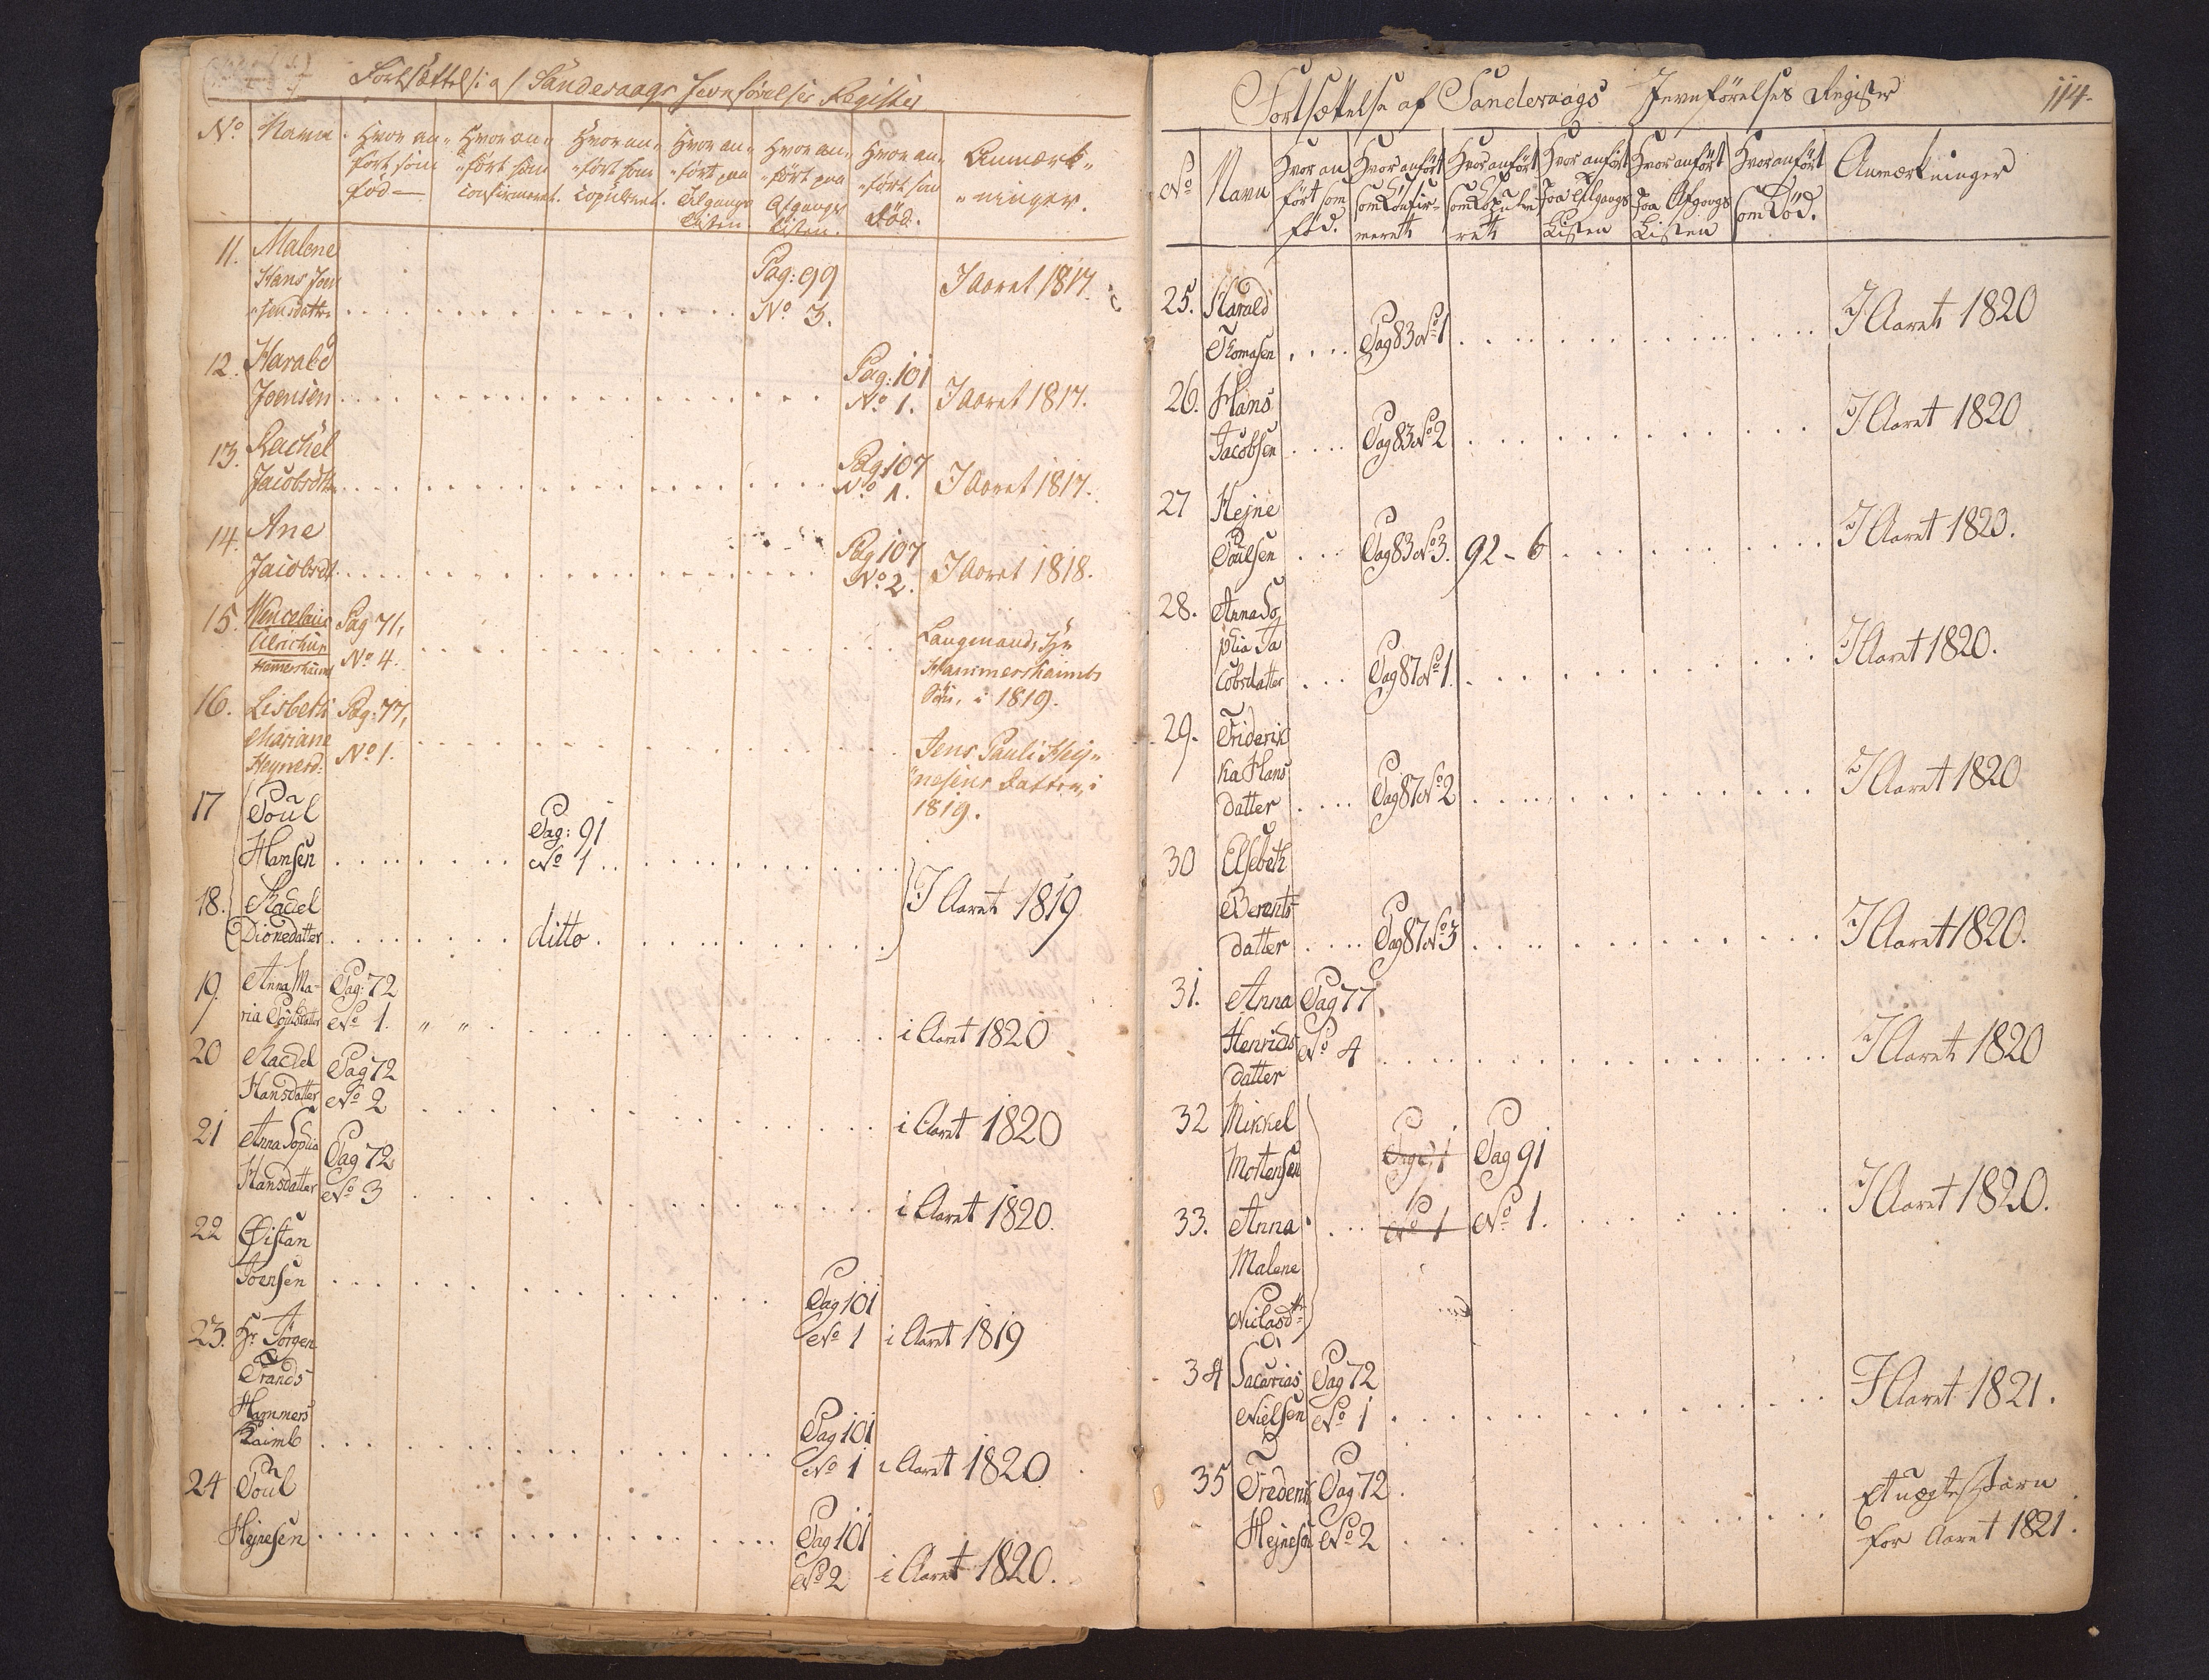 Fortsættelse af Sandevaags Jevnførelses Register
No Navn. Hvor an- Hvor an- Hvor an- Hvor an- Hvor an- Hvor an- Anmærk-
ført som ført som ført som ført paa ført paa ført som ninger.
fød confirmeret. copuleret. Tilgangs Afgangs død.
Listen. Listen.
11. Malene
Hans Joen Pag: 99 I Aaret 1817.
sensdatter No 3.
12. Harald Pag: 101
Joensen No 1. I Aaret 1817.
13. Rachel Pag 107
Jacobsdtr No 1. I Aaret 1817.
14. Ane Pag 107
Jacobsdt. No 2. I Aaret 1818.
15. Wenceslaus Pag 71,
Ulrichus No 4. Laugmand
Hammershaimb Hammershaimbs
Søn, i 1819.
16. Lisbeth Pag: 77,
Mariane No 1. Jens Pauli Hey-
Heynesd: nesens Datter, i
1819.
17 Poul Pag: 91
Hansen No 1
18. Rachel I Aaret 1819
Dionedatter ditto
19. Anna Ma- Pag: 72
ria Poulsdatter No 1. " " i Aaret 1820
20 Rachel Pag 72
Hansdatter No 2 i Aaret 1820
21 Anna Sophia Pag 72
Hansdatter No 3 i Aaret 1820.
22 Øistan
Joensen Pag 101
No 1 i Aaret 1819
23. Hr Jørgen
Frands
Hammers Pag 101
haimb No 1 i Aaret 1820
24 Poul
Hejnesen Pag 101
No 2 i Aaret 1820.
Fortsættelse af Sandevaags Jevnførelses Register 114.
No Navn Hvor an Hvor anført Hvor anført Hvor anført Hvor anført Hvor anført Anmærkninger
ført som som Confir- som Copule paa Tilgangs paa Afgangs som Død.
fød. meret ret Listen Listen
25. Harald
Thomasen Pag 83 No 1 I Aaret 1820
26. Hans
Jacobsen Pag 83 No 2 I Aaret 1820
27 Hejne
Poulsen Pag 83 No 3. 92 - 6 I Aaret 1820.
28. Anna So
phia Ja
cobsdatter Pag 87 No 1. I Aaret 1820.
29. Friderik
ka Hans
datter Pag 87 No 2 I Aaret 1820
30 Elsebeth
Berents
datter Pag 87 No 3 I Aaret 1820.
31. Anna Pag 77
Henrichs No 4
datter I Aaret 1820
32 Mikkel
Mortensen Pag 91 Pag 91
33. Anna No 1 No 1. I Aaret 1820.
Malene
Niclasdtr
34 Sacarias Pag 72
Nielsen No 1 I Aaret 1821.
35 Frederik Pag 72. Et uægte Barn
Hejnesen No 2 for Aaret 1821.